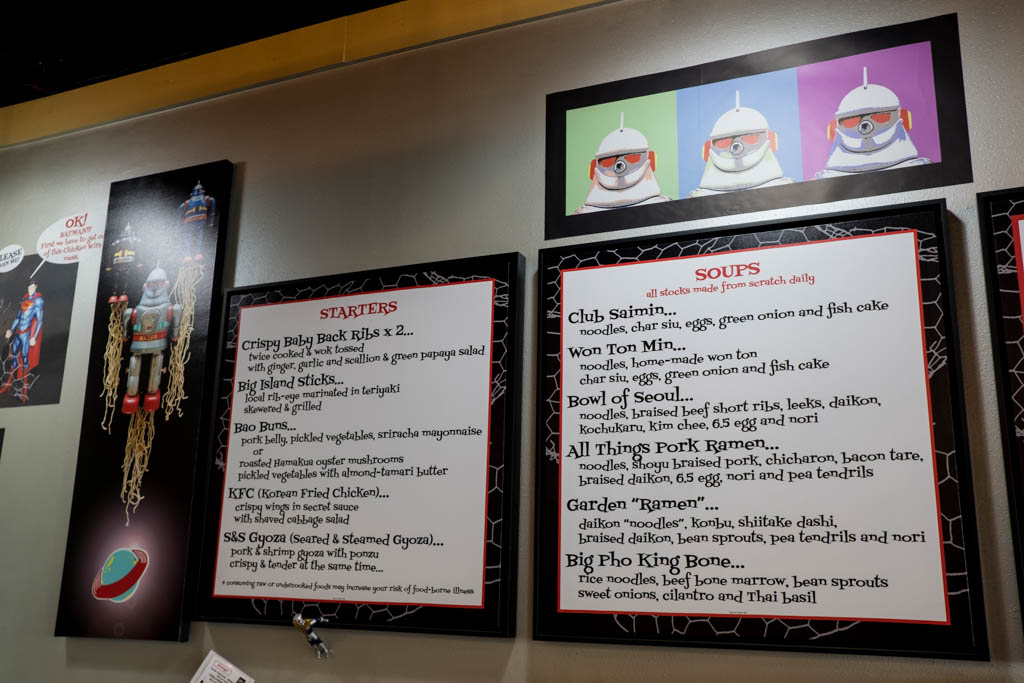 OK!
BATMAN!!!
First we have to get out
of this Chicken wire
mess.
STARTERS
Crispy Baby Back Ribs x 2...
twice cooked & wok tossed
with ginger, garlic and scallion & green papaya salad
Big Island Sticks...
local rib-eye marinated in teriyaki
skewered & grilled
Bao Buns...
pork belly, pickled vegetables, sriracha mayonnaise
or
roasted Hamakua oyster mushrooms
pickled vegetables with almond-tamari butter
KFC (Korean Fried Chicken)...
crispy wings in secret sauce
with shaved cabbage salad
S&S Gyoza (Seared & Steamed Gyoza)...
pork & shrimp gyoza with ponzu
crispy & tender at the same time...
* consuming raw or undercooked foods may increase your risk of food-borne illness
SOUPS
all stocks made from scratch daily
Club Saimin...
noodles, char siu, eggs, green onion and fish cake
Won Ton Min...
noodles, home-made won ton
char siu, eggs, green onion and fish cake
Bowl of Seoul...
noodles, braised beef short ribs, leeks, daikon,
kochukaru, kim chee, 6.5 egg and nori
All Things Pork Ramen...
noodles, shoyu braised pork, chicharon, bacon tare,
braised daikon, 6.5 egg, nori and pea tendrils
Garden "Ramen"...
daikon "noodles", konbu, shiitake dashi,
braised daikon, bean sprouts, pea tendrils and nori
Big Pho King Bone...
rice noodles, beef bone marrow, bean sprouts
sweet onions, cilantro and Thai basil